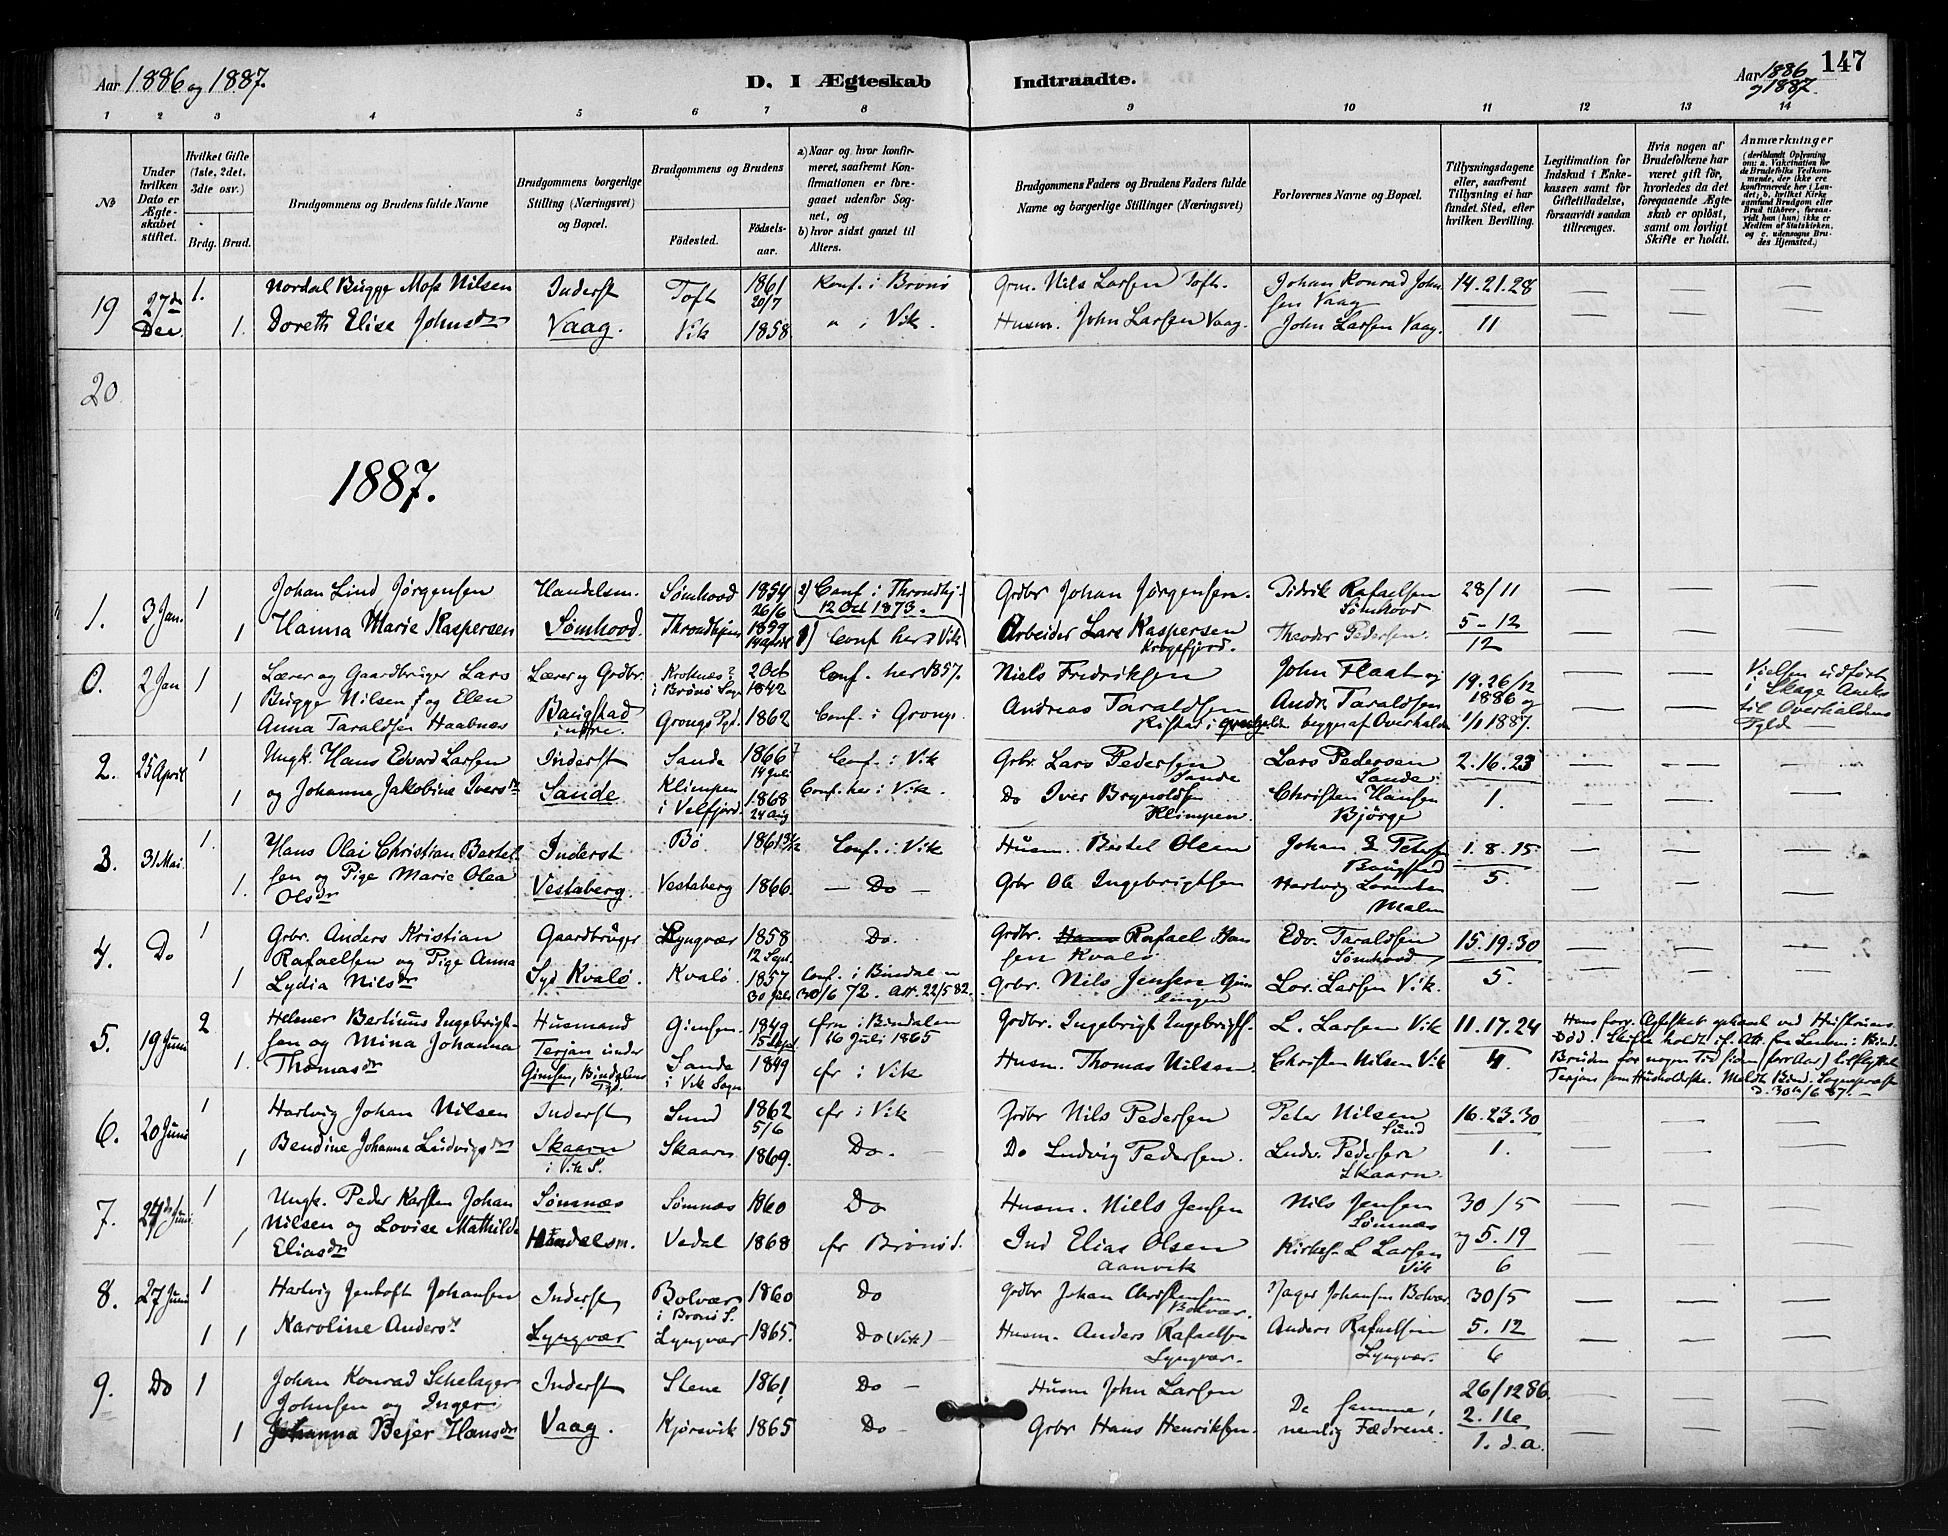 Aar 1886 og 1887.
D. I Ægteskab Indtraadte.
Aar 1886 og 1887.
147
1 2 3 4 5 6 7 8 9 10 11 12 13 14
No
Under hvilken Dato er Ægteskabet stiftet.
Hvilket Gifte (1ste, 2det, 3die osv.)
Brdg. Brud.
Brudgommens og Brudens fulde Navne
Brudgommens borgerlige Stilling (Næringsvei) og Bopæl.
Brudgommens og Brudens
Fødested.
Fødselsaar.
a) Naar og hvor konfirmeret, saafremt Konfirmationen er foregaaet udenfor Sognet, og
b) hvor sidst gaaet til Alters.
Brudgommens Faders og Brudens Faders fulde Navne og borgerlige Stillinger (Næringsvei)
Forlovernes Navne og Bopæl.
Tillysningsdagene eller, saafremt Tillysning ei har fundet Sted, efter hvilken Bevilling.
Legitimation for Indskud i Ænkekassen samt for Giftetilladelse, forsaavidt saadan tiltrænges.
Hvis nogen af Brudefolkene har været gift før, hvorledes da det foregaaende Ægteskab er opløst, samt om lovligt Skifte er holdt.
Anmærkninger
(deriblandt Oplysning om: a. Vaccination for de Brudefolks Vedkommende, der ikke ere konfirmerede her i Landet; b. hvilket Kirkesamfund Brudgom eller Brud tilhører, forsaavidt han (hun) ikke er Medlem af Statskirken, og c. udensogns Brudes Hjemsted.)
19 27de Dec 1. Nordal Bugge Moss Nilsen Inderst Toft 1861 20/7 Konf. i Brønø Grm. Nils Larsen Toft. Johan Konrad Johnsen Vaag 14. 21. 28
1. Doreth Elise Johnsdr Vaag. Vik 1858 " i Vik. Husm. John Larsen Vaag. John Larsen Vaag. 11
20
1887.
1. 3 Jan. 1 Johan Lind Jørgensen Handelsm. Sømhovd 1854 26/6 a) Conf. i Throndhj. 12 Oct 1873. Grdbr Johan Jørgensen. Didrik Rafaelsen Sømhovd 28/11
1 Hanna Marie Kaspersen Sømhovd. Throndhjem 1859 Conf her i Vik Arbeider Lars Kaspersen Theodor Pedersen. 5 - 12 12
0. 2 Jan 1 Lærer og Gaardbruger Lars Lærer og Grdbr. 2 Oct 1842 i Brønø Sogn Conf. her 1857. Niels Fredriksen John Flaat og 19. 26/12 1886 og Vielsen udført i Skage Anex til Overhaldens
1 Bugge Nilsen og Elen Anna Taraldsen Haabnæs Baugstad indre. Grongs Pgd. 1862 Conf. i Grongs. Andreas Taraldsen Andr. Taraldsen begge af Overhalden 1/1 1887.
2. 25 April 1 Ungk. Hans Edvard Larsen Inderst Sande 1866 14 Juli Conf. i Vik Grbr. Lars Pedersen Sande Lars Pedersen Sande. 2. 16. 23
1 og Johanna Jakobine Iversdr Sande Klimpen i Velfjord. 1868 24 Aug Conf. her i Vik. Do Iver Brynoldsen Klimpen. Christen Hansen Bjørge 1.
3. 31 Mai. 1. Hans Olai Christian Bertelsen og Pige Marie Olea Olsdr Inderst Bø 1861 Conf. i Vik Husm. Bertel Olsen Baugstad 1. 8. 15
1. Vestaberg. Vestaberg 1866. - Do - Grbr Ol Ingebrigtsen Hartvig Lorentsen Malm 5.
4. Do 1 Grbr. Anders Kristian Rafaelsen og Pige Anna Gaardbruger Lyngvær 1858 12 Sept. Do. Grdbr. Rafael Hansen Kvalø Edv. Taraldsen Sømhovd 15. 19. 30
1 Lydia Nilsdr Syd Kvalø. Kvalø 1857 30 Conf. i Bindalen 30/6 72. Att. 22/5 82. Grbr. Nils Jensen Lor. Larsen Vik. 5.
5. 19 Juni 2 Helmer Bertinus Ingebrigtsen og Mina Johanna Husmand Gimsen. 1849 15 Sept. frn i Bindalen 16 Juli 1865 Grdbr. Ingebrigt Ingebrigts. L. Larsen Vik 11. 17. 24
1. Thomasdr Terjan under Gimsen, Bindalens Pgd. Sande i Vik Sogn 1849 fr i Vik Husm. Thomas Nilsen Christen Nilsen Vik 4.
Hans forr. Ægteskab ophævet ved Hustruens Død. Skifte holdt
6. 20 Juni 1 Hartvig Johan Nilsen Inderst Sund 1862 5/6 fr i Vik Grdbr Nils Pedersen Peter Nilsen Sund 16. 23. 30
1 Bendine Johanna Ludvigsdr Skaarn i Vik S. Skaarn 1869. Do. Do Ludvig Pedersen. Ludv. Pedersen Skaarn 1.
7. 24de Juni 1 Ungk. Peder Karsten Johan Nilsen og Lovise Mathilde Sømnæs Sømnæs 1860 Do Husm. Niels Jensen Nils Jensen Sømnæs 30/5
1 Eliasdr Handelsm. Vedal 1868 fr Brønød. Ind Elias Olsen Aanvik Kirkes. L Larsen Vik og 5. 19 6
8. 27 Juni 1 Hartvig Jentoft Johansen Inderst Bolvær i Brønø S. 1860 Do Grdbr Johan Christensen Bolvær. Johansen Bolvær. 30/5
1 1 Karoline Andersdr Lyngvær Lyngvær 1865. Do (Vik) Husm. Anders Rafaelsen Lyngvær. Anders Rafaelsen Lyngvær. 5. 12 6
9. Do 1 Johan Konrad Schelager Johnsen og Inger Inderst Stene 1861 Do - Husm John Larsen De samme, 26/12 86.
1 Johanna Bejer Hansdr Vaag. Kjørsvik 1865 Do - Grbr Hans Henriksen. nemlig Fædrene. 2. 16 1. d. a.